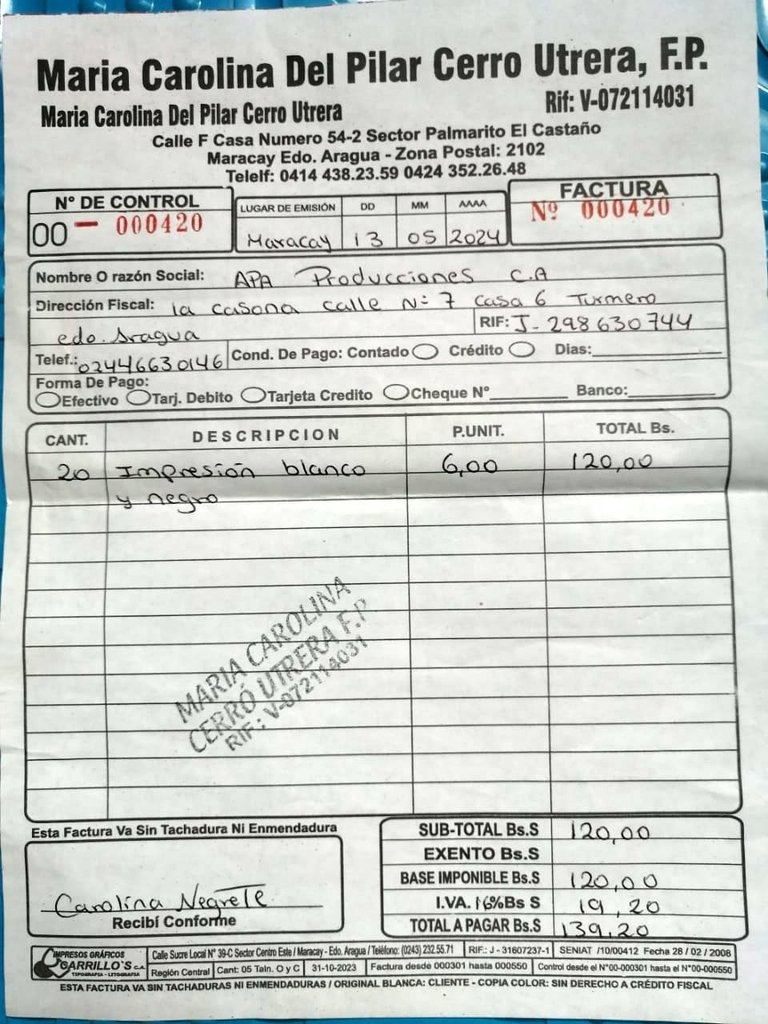 Maria Carolina Del Pilar Cerro Utrera, F.P.
Maria Carolina Del Pilar Cerro Utrera Rif: V-072114031
Calle F Casa Numero 54-2 Sector Palmarito El Castaño
Maracay Edo. Aragua - Zona Postal: 2102
Telelf: 0414 438.23.59 0424 352.26.48
N° DE CONTROL LUGAR DE EMISIÓN DD MM AAAA FACTURA
00 - 000420 Maracay 13 05 2024 Nº 000420
Nombre O razón Social: APA Producciones C.A
Dirección Fiscal: la casona calle N: 7 casa 6 Turmero
edo. Aragua RIF: J-298630744
Telef.: 02446630146 Cond. De Pago: Contado Crédito Dias:
Forma De Pago:
Efectivo Tarj. Debito Tarjeta Credito Cheque N° Banco:
CANT. DESCRIPCION P.UNIT. TOTAL Bs.
20 Impresión blanco 6,00 120,00
y negro
MARIA CAROLINA
CERRO UTRERA F.P
RIF: V-072114031
Esta Factura Va Sin Tachadura Ni Enmendadura
SUB-TOTAL Bs.S 120,00
EXENTO Bs.S
BASE IMPONIBLE Bs.S 120,00
I.V.A. 16%Bs S 19,20
TOTAL A PAGAR Bs.S 139,20
Carolina Negrete
Recibí Conforme
IMPRESOS GRÁFICOS
GARRILLO'S C.A.
TIPOGRAFIA - LITOGRAFIA
Calle Sucre Local N° 39-C Sector Centro Este / Maracay - Edo. Aragua / Teléfono: (0243) 232.55.71 RIF.: J - 31607237-1 SENIAT /10/00412 Fecha 28 / 02 / 2008
Región Central Cant: 05 Taln. O y C 31-10-2023 Factura desde 000301 hasta 000550 Control desde el N°00-000301 hasta el N°00-000550
ESTA FACTURA VA SIN TACHADURAS NI ENMENDADURAS / ORIGINAL BLANCA: CLIENTE - COPIA COLOR: SIN DERECHO A CRÉDITO FISCAL